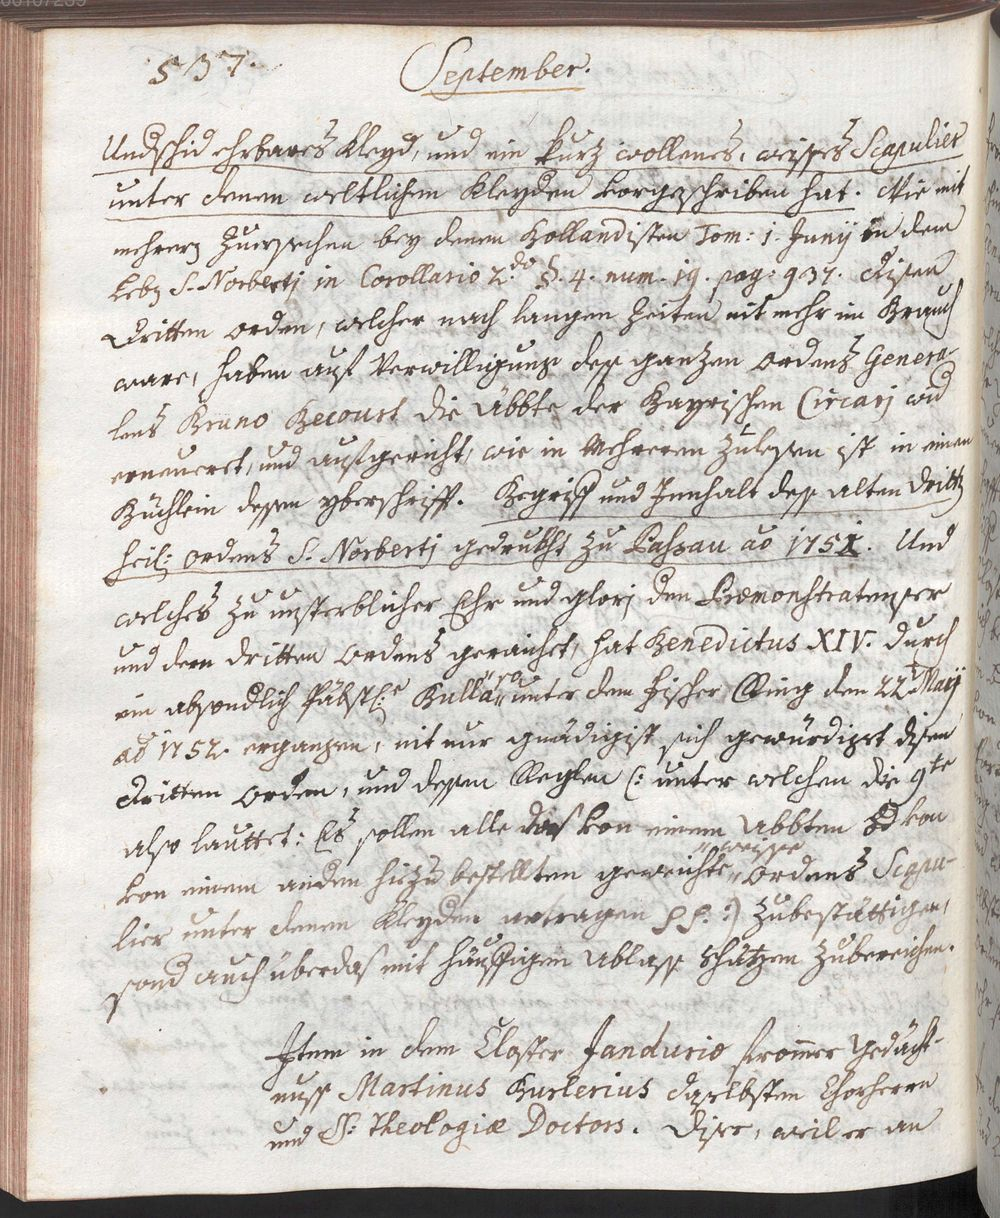 00107239
537.
September.
Undschid ehrbares Kleyd, und ein kurz wollenes, weisses Scapulier
unter denen weltlichen Kleyden vorgeschriben hat. Wie mit
mehrerz zuersechen bey denen Bollandisten Tom: 1. Junij in dem
Lebz S. Norbertj in Corollario 2.do §. 4. num. 19. pag: 937. Disen
Dritten orden, welcher nach langen Zeiten nit mehr im Brauch
ware, haben aus Verwilligung dess gantzen ordens Genera-
lens Bruno Becourt die Äbbte der Bayrischen Circarj wid
erneueret, und aufgericht, wie in Mehreren zulesen ist in einen
Büchlein dessen yberschrifft. Begriff und Innhalt dess alten dritt
heil: ordens S. Norbertj gedrukht zu Passau ao 1751. Und
welches zu unsterblicher Ehr und glorj den Præmonstratenser
und dem dritten ordens geraichet, hat Benedictus XIV. durch
ein absondlich Päbstl:e Bulla unter dem Fischer Ring den 22t Maij
ao 1752. erganzen, nit nur gnädigist sich gewürdiget disen
dritten orden, und dessen Reglen (: unter welchen die 9te
also lauttet: Es sollen alle das von einem Abbten od von
von einem anden hiezu bestellten geweichte weisse ordens Scapu-
lier unter denen Kleyden antragen pp: :) zubestättigen,
sond auch überdass mit häuffigen Ablass schätzen zubereichen.
Item in dem Closter Jandurio frommer gedächt-
nuss Martinus Burlerius daselbsten Chorherrn
und SS: Theologiæ Doctors. Diser, weil er an